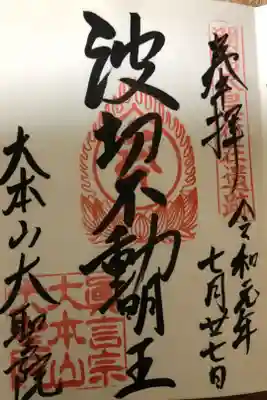 奉拝
令和元年
七月廿七日
波切不動明王
大本山大聖院
眞言宗
大本山